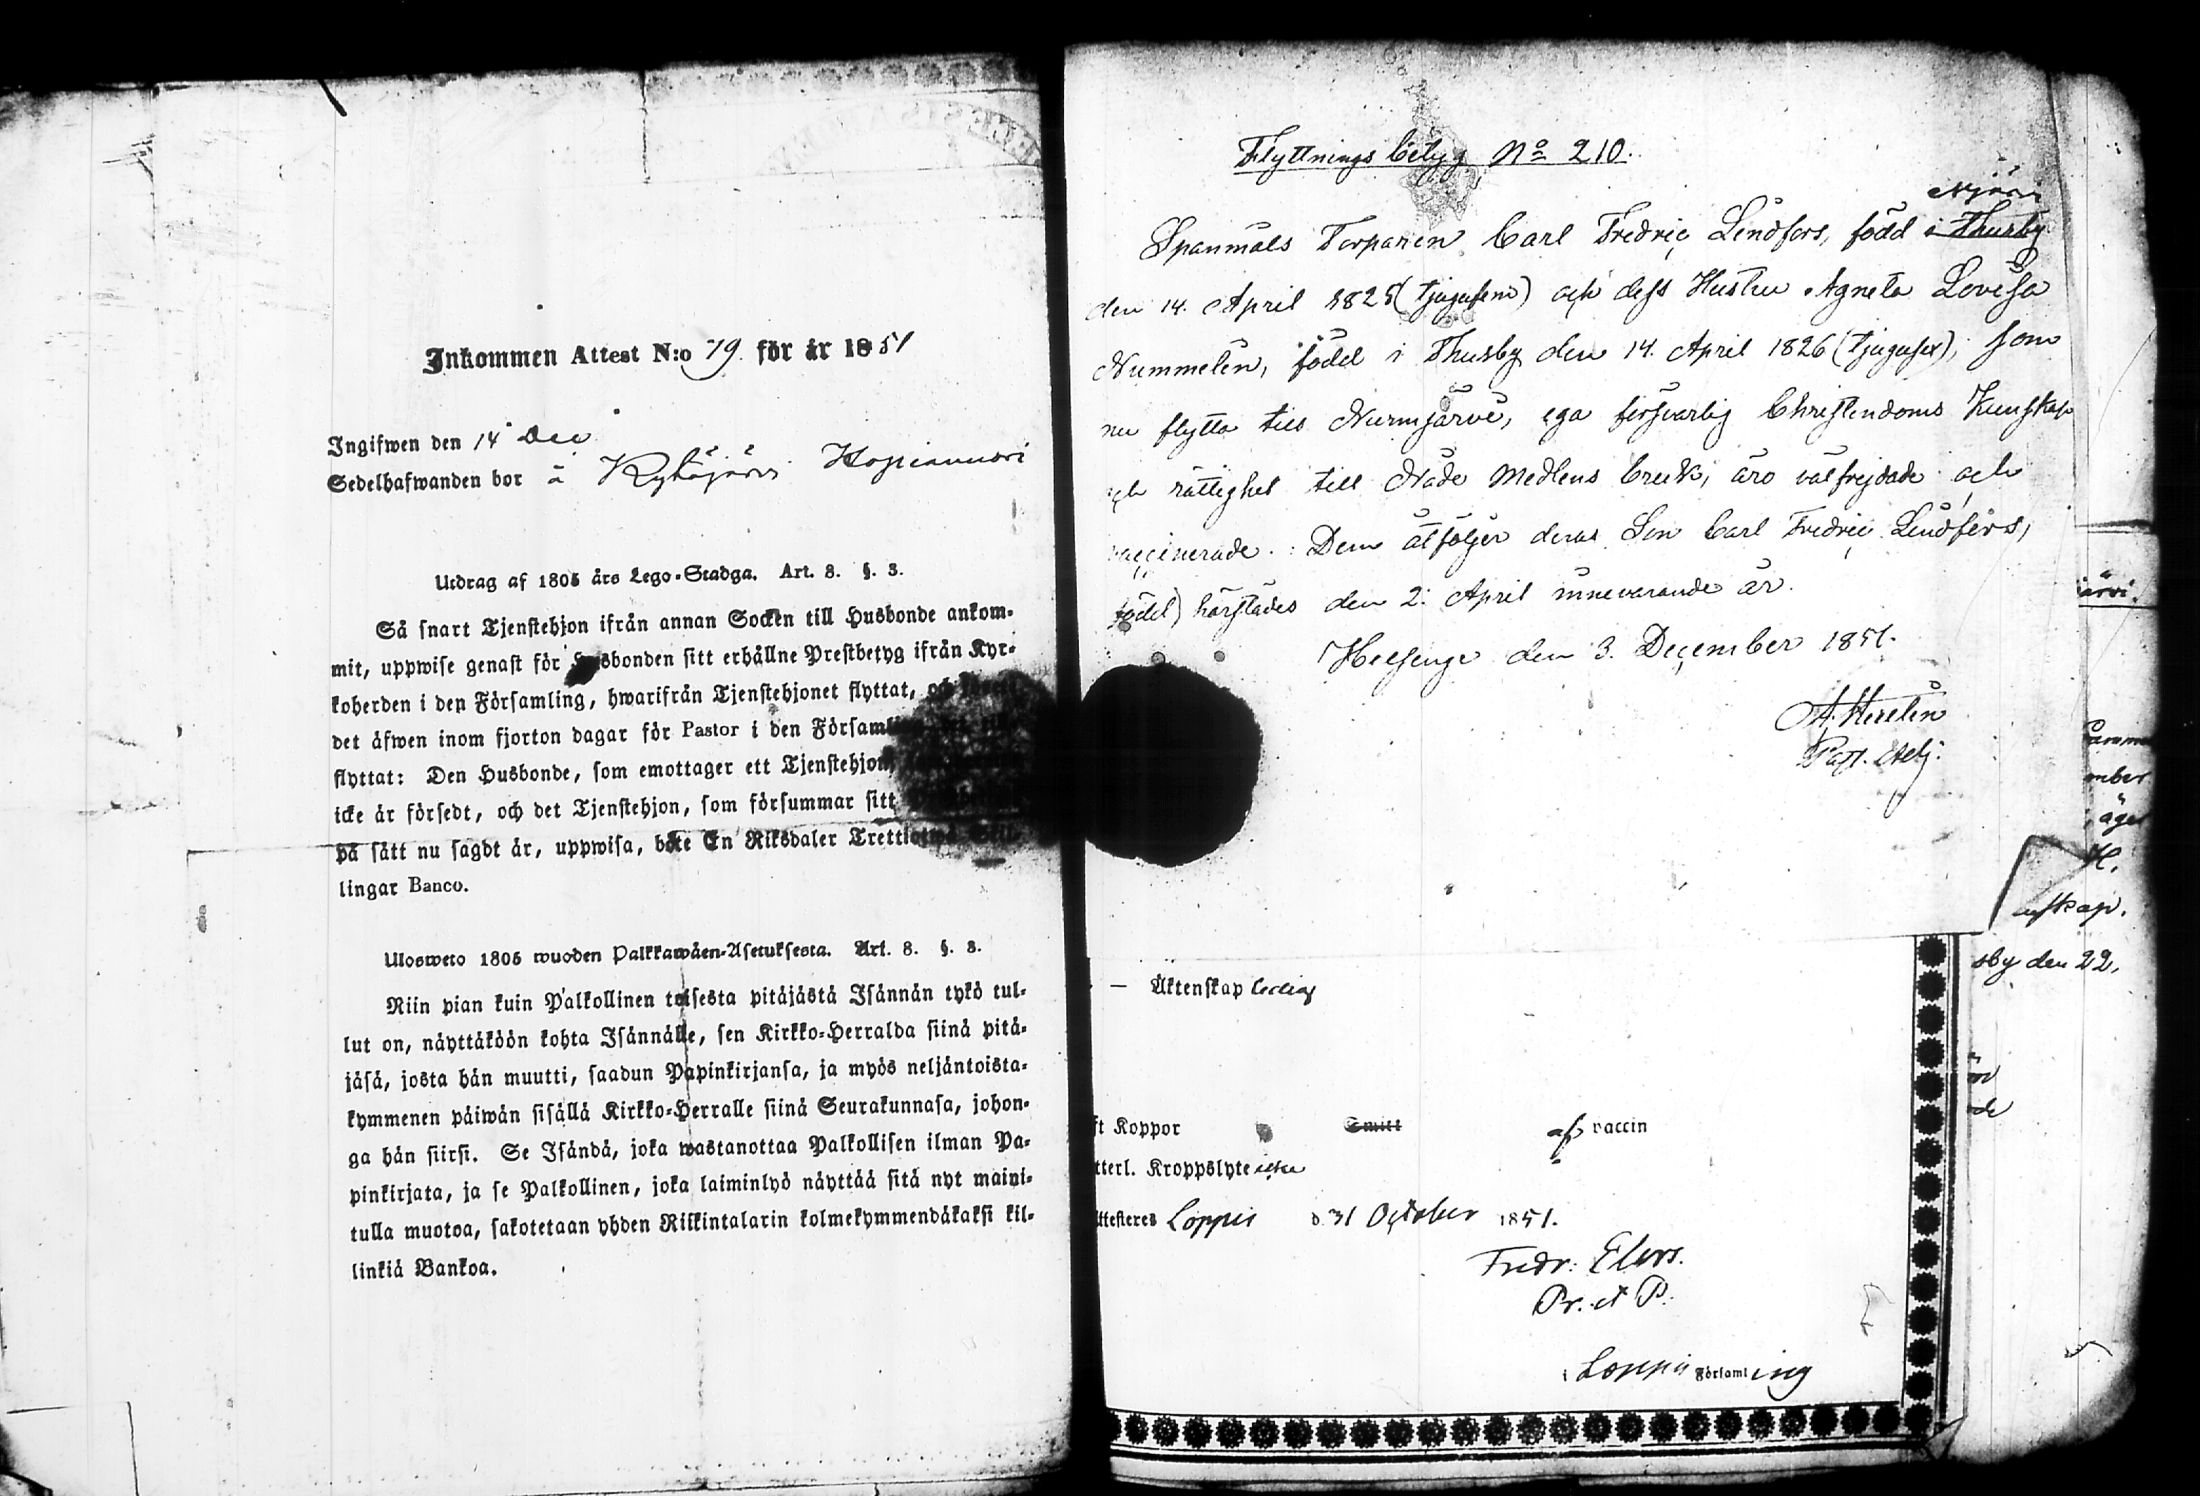 Inkommen Attest N:o 79 för år 1851
Ingifwen den 14 Dec
Sedelhafwanden bor å Kytäjärvi
Utdrag af 1805 års Lego-Stadga. Art. 8. §. 3.
Så snart Tjenstehjon ifrån annan Socken till Husbonde ankom-
mit, uppwise genast för Husbonden sitt erhållne Prestbetyg ifrån Kyr-
koherden i den Församling, hwarifrån Tjenstehjonet flyttat, och
det äfwen inom fjorton dagar för Pastor i den
flyttat: Den Husbonde, som emottager ett Tjenstehjon,
icke är försedt, och det Tjenstehjon, som försummar sitt
på sätt nu sagdt är, uppwisa, böte En Riksdaler Trettiotwå Skil-
lingar Banco.
Ulosweto 1805 wuoden Palkkawäen-Asetuksesta. Art. 8. §. 3.
Niin pian kuin Palkollinen toisesta pitäjästä Isännän tykö tul-
lut on, näyttäköön kohta Isännälle, sen Kirkko-Herralda siinä pitä-
jäsä, josta hän muutti, saadun Papinkirjansa, ja myös neljäntoista-
kymmenen päiwän sisällä Kirkko-Herralle siinä Seurakunnasa, johon-
ga hän siirsi. Se Isändä, joka wastanottaa Palkollisen ilman Pa-
pinkirjata, ja se Palkollinen, joka laiminlyö näyttää sitä nyt maini-
tulla muotoa, sakotetaan yhden Riikintalarin kolmekymmendäkaksi kil-
linkiä Bankoa.
Flyttnings betyg No 210.
Njärvi
Spanmåls Torparen Carl Fredric Lindfors, född i Thusby
den 14. April 1825 (tjugufem) och dess Hustru Agneta Lovisa
Nummelin, född i Thusby den 14. April 1826 (tjugusex), som
nu flytta till Nurmijärvi, ega försvarlig Christendoms Kunskap
och rättighet till Nåde Medlens bruk, äro välfrejdade och
vaccinerade. Dem åtföljer deras Son Carl Fredric Lindfors,
född härstädes den 2. April innevarande år.
Helsinge den 3. December 1851.
Past. Adj.
— Äktenskap ledig
ft Koppor Smitt af vaccin
tterl. Kroppslyte icke
ttesteres Loppis d. 31 October 1851.
Fredr: Elers.
Pr. et P.
i Loppis Församling
ärvi.
mber
äger
unskap.
sby den 22.